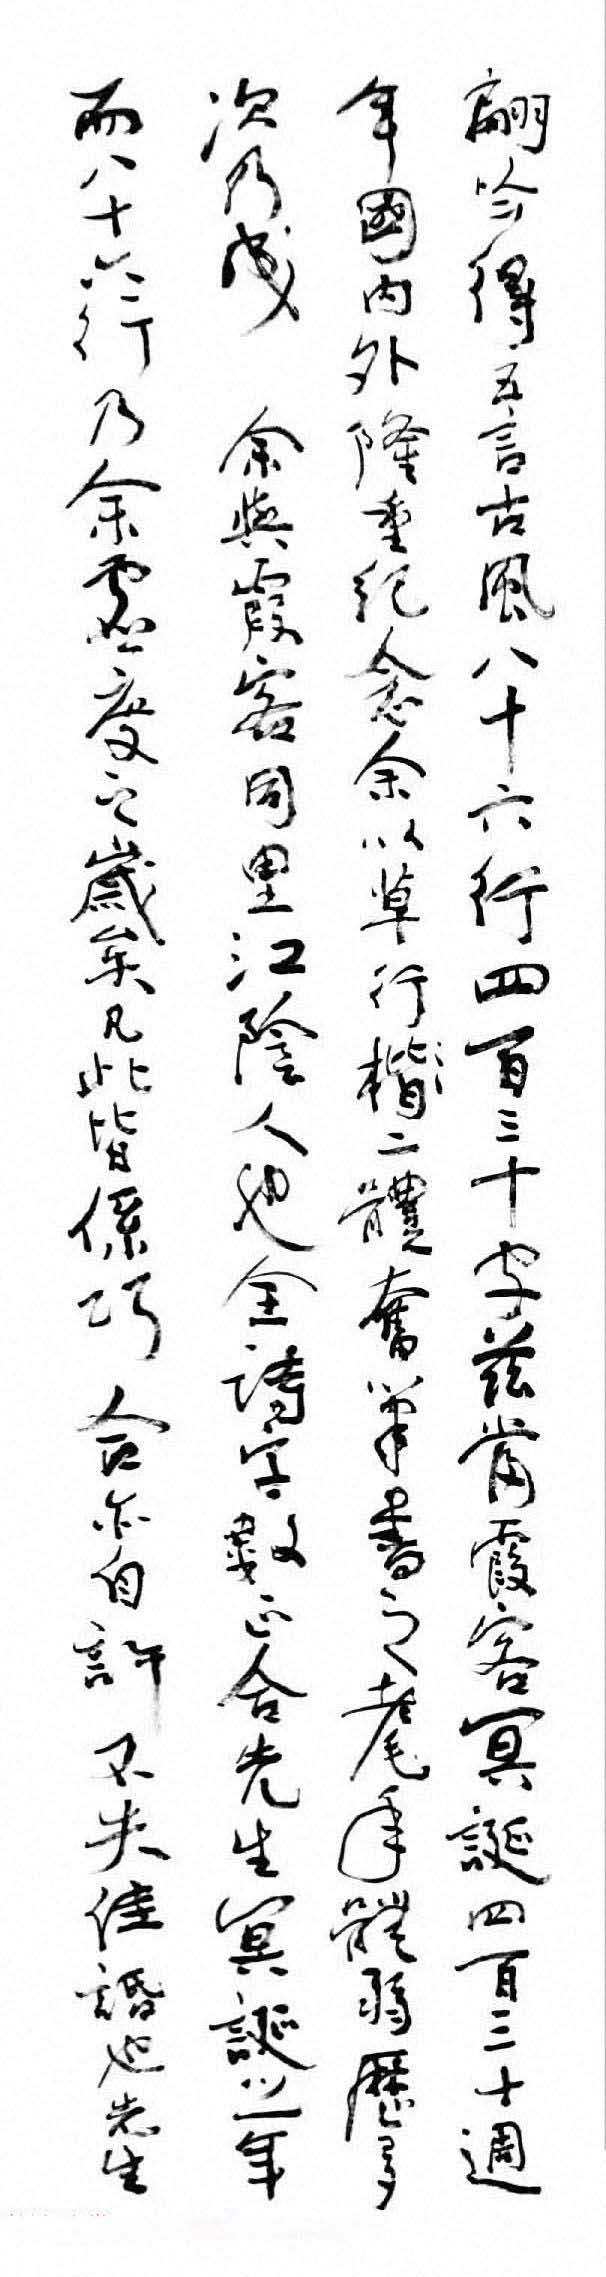 翩吟得五言古風八十六行四百三十字茲當霞客冥誕四百三十週
年國內外隆重紀念余以草行楷二體奮筆書之耄年體弱歷多
次乃成 余與霞客同里江陰人也全詩字數正合先生冥誕之年
而八十六行乃余虛度之歲矣凡此皆係巧合亦自許不失佳話也先生